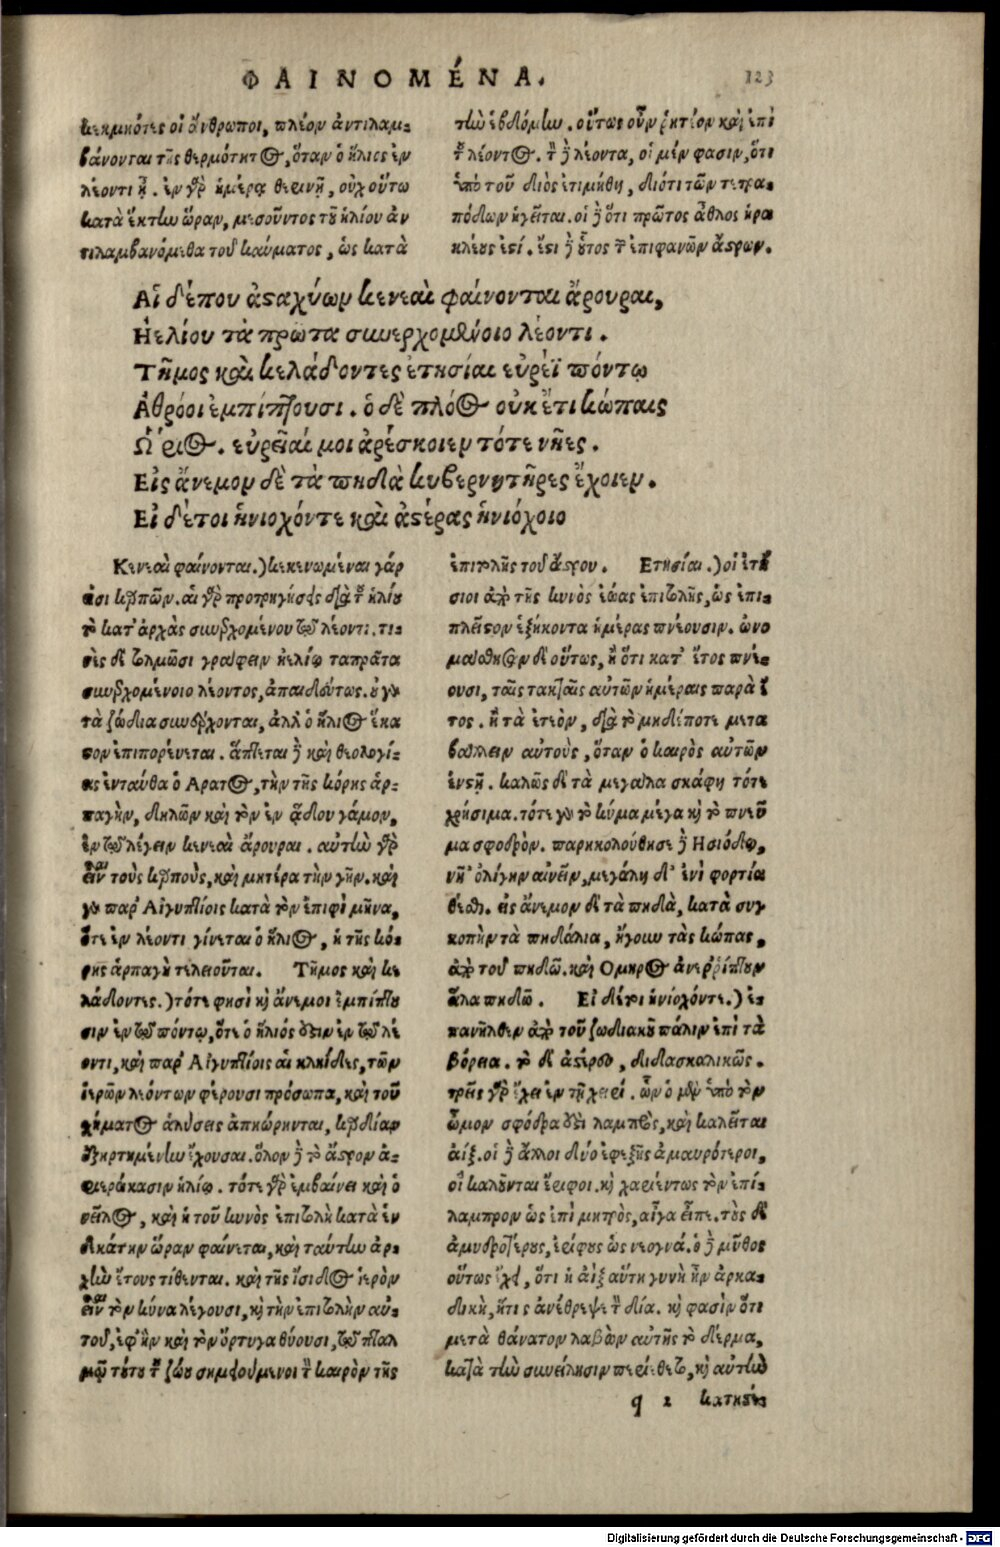 ΦΑΙΝΟΜΈΝΑ. 123
κεκμηκότες οἱ ἄνθρωποι, πλέον ἀντιλαμ-
βάνονται τῆς θερμότητος, ὅταν ὁ ἥλιος ἐν
λέοντι ᾖ. ἐν γὰρ ἡμέρᾳ θερινῇ, οὐχ οὕτω
κατὰ ἕκτην ὥραν, μεσοῦντος τοῦ ἡλίου ἀν
τιλαμβανόμεθα τοῦ καύματος, ὡς κατὰ
τὴν ἑβδόμην. οὕτως οὖν ῥητέον καὶ ἐπὶ
τοῦ λέοντος. τὸν δὲ λέοντα, οἱ μέν φασιν, ὅτι
ὑπὸ τοῦ διὸς ἐτιμήθη, διότι τῶν τετρα-
πόδων ἡγεῖται. οἱ δὲ ὅτι πρῶτος ἆθλος ἡρα
κλέους ἐστί. ἔστι δὲ οὗτος τῶν ἐπιφανῶν ἄστρων.
Αἱ δέπου ἀσταχύων κενεαὶ φαίνονται ἄρουραι,
Ἠελίου τὰ πρῶτα συνερχομένοιο λέοντι.
Τῆμος καὶ κελάδοντες ἐτησίαι εὐρέϊ πόντῳ
Ἀθρόοι ἐμπίπτουσι. ὁ δὲ πλόος οὐκ ἔτι κώπαις
Ὥριος. εὐρεῖαί μοι ἀρέσκοιεν τότε νῆες.
Εἰς ἄνεμον δὲ τὰ πηδὰ κυβερνητῆρες ἔχοιεν.
Εἰ δέτοι ἡνιοχόντε καὶ ἀστέρας ἡνιόχοιο
Κενεαὶ φαίνονται.) κεκενωμέναι γάρ
εἰσι καρπῶν. αἱ γὰρ προτρυγήσεις διὰ τοῦ ἡλίου
τὸ κατ' ἀρχὰς συνερχομένου τῷ λέοντι. τι-
νὲς δὲ τολμῶσι γράφειν ἠελίῳ ταπρῶτα
συνερχομένοιο λέοντος, ἀπαιδεύτως. οὐ γὰρ
τὰ ζώδια συνέρχονται, ἀλλ' ὁ ἥλιος ἑκά
στον ἐπιπορεύεται. ἅπτεται δὲ καὶ θεολογί-
ας ἐνταῦθα ὁ Αρατος, τὴν τῆς κόρης ἁρ-
παγὴν, δηλῶν καὶ τὸν ἐν ᾅδου γάμον,
ἐν τῷ λέγειν κενεαὶ ἄρουραι. αὐτὴν γὰρ
εἶναι τοὺς καρποὺς, καὶ μητέρα τὴν γῆν. καὶ
γὰρ παρ' Αἰγυπτίοις κατὰ τὸν ἐπιφὶ μῆνα,
ὅτε ἐν λέοντι γίνεται ὁ ἥλιος, ἡ τῆς κό-
ρης ἁρπαγὴ τελειοῦται. Τῆμος καὶ κε
λάδοντες.) τότε φησὶ καὶ ἄνεμοι ἐμπίπτου
σιν ἐν τῷ πόντῳ, ὅτε ὁ ἥλιός ἐστιν ἐν τῷ λέ
οντι, καὶ παρ' Αἰγυπτίοις αἱ κλεῖδες, τῶν
ἱερῶν λεόντων φέρουσι πρόσωπα, καὶ τοῦ
χήματος ἁλύσεις ἀπηώρηνται, καρδίαν
ἐξηρτημένην ἔχουσαι. ὅλον δὲ τὸ ἄστρον ἀ-
φιεράκασιν ἡλίῳ. τότε γὰρ ἐμβαίνει καὶ ὁ
νεῖλος, καὶ ἡ τοῦ κυνὸς ἐπιτολὴ κατὰ ἑν
δεκάτην ὥραν φαίνεται, καὶ ταύτην ἀρ-
χὴν ἔτους τίθενται. καὶ τῆς ἴσιδος ἱερὸν
εἶναι τὸν κύνα λέγουσι, καὶ τὴν ἐπιτολὴν αὐ-
τοῦ, ἐφ' ἣν καὶ τὸν ὄρτυγα θύουσι, τῷ παλ
μῷ τούτου τοῦ ζώου σημειούμενοι τὸν καιρὸν τῆς
ἐπιτολῆς τοῦ ἄστρου. Ετησίαι.) οἱ ἐτη
σίοι ἀπὸ τῆς κυνὸς ἑῴας ἐπιτολῆς, ὡς ἐπι-
πλεῖστον ἑξήκοντα ἡμέρας πνέουσιν. ὠνο
μάσθησαν δὲ οὕτως, ἢ ὅτι κατ' ἔτος πνέ-
ουσι, ταῖς τακταῖς αὐτῶν ἡμέραις παρὰ ἔ
τος. ἢ τὰ ἐτεὸν, διὰ τὸ μηδέποτε μετα
βάλλειν αὐτοὺς, ὅταν ὁ καιρὸς αὐτῶν
ἐνστῇ. καλῶς δὲ τὰ μεγάλα σκάφη τότε
χρήσιμα. τότε γὰρ τὸ κῦμα μέγα καὶ τὸ πνεῦ
μα σφοδρόν. παρηκολούθησε δὲ Ησιόδῳ,
νῆ' ὀλίγην αἰνεῖν, μεγάλῃ δ' ἐνὶ φορτία
θέσθαι. εἰς ἄνεμον δὲ τὰ πηδὰ, κατὰ συγ
κοπὴν τὰ πηδάλια, ἤγουν τὰς κώπας,
ἀπὸ τοῦ πηδῶ. καὶ Ομηρος ἀνερρίπτουν
ἅλα πηδῷ. Εἰ δέτοι ἡνιόχοντε.) ἐ-
πανῆλθεν ἀπὸ τοῦ ζωδιακοῦ πάλιν ἐπὶ τὰ
βόρεια. τὸ δὲ ἀστέρας, διδασκαλικῶς.
τρεῖς γὰρ ἔχει ἐν τῇ χειρί. ὧν ὁ μὲν ὑπὸ τὸν
ὦμον σφόδρα ἐστὶ λαμπρὸς, καὶ καλεῖται
αἴξ. οἱ δὲ ἄλλοι δύο ἐφεξῆς ἀμαυρότεροι,
οἳ καλοῦνται ἔριφοι. καὶ χαριέντως τὸν ἐπί-
λαμπρον ὡς ἐπὶ μητρὸς, αἶγα εἶπε. τοὺς δὲ
ἀμυδροτέρους, ἐρίφους ὡς νεογνά. ὁ δὲ μῦθος
οὕτως ἔχει, ὅτι ἡ αἲξ αὕτη γυνὴ ἦν ἀρκα-
δικὴ, ἥτις ἀνέθρεψε τὸν δία. καὶ φασὶν ὅτι
μετὰ θάνατον λαβὼν αὐτῆς τὸ δέρμα,
κατὰ τὴν συνείλησιν περιέθετο, καὶ αὐτὴν
q 2 κατηστέ-